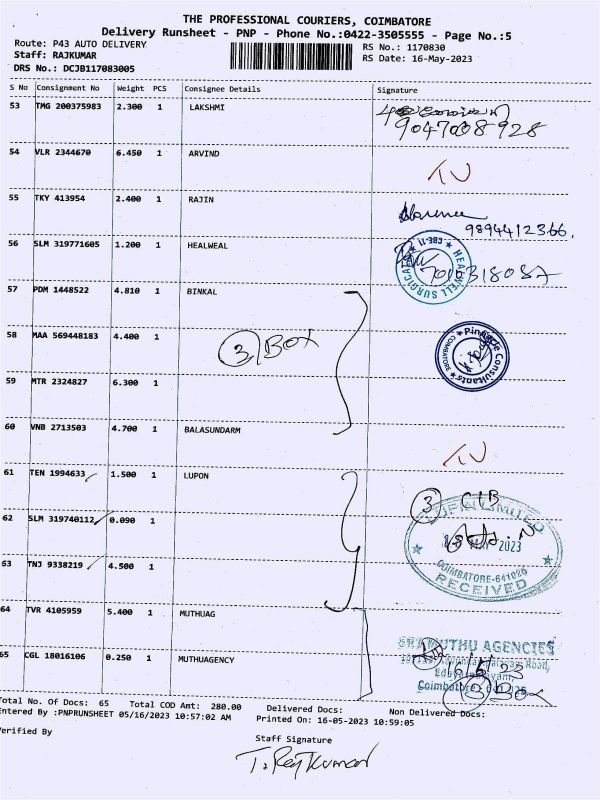 THE PROFESSIONAL COURIERS, COIMBATORE
Delivery Runsheet - PNP - Phone No.:0422-3505555 - Page No.:5
Route: P43 AUTO DELIVERY
RS No.: 1170830
Staff: RAJKUMAR
RS Date: 16-May-2023
DRS No.: DCJB117083005
S No Consignment No Weight PCS Consignee Details Signature
53 TMG 200375983 2.300 1 LAKSHMI
9047008928
54 VLR 2344670 6.450 1 ARVIND
55 TKY 413954 2.400 1 RAJIN
9894412366.
56 SLM 319771605 1.200 1 HEALWEAL
CBE-11 ★ HEALWELL SURGICALS ★
57 PDM 1448522 4.810 1 BINKAL
58 MAA 569448183 4.400 1
3 Box
Pinnacle Consultants ★ COIMBATORE ★
59 MTR 2324827 6.300 1
60 VNB 2713503 4.700 1 BALASUNDARM
61 TEN 1994633 1.500 1 LUPON
3
62 SLM 319740112 0.090 1
LUPIN LIMITED
2023
63 TNJ 9338219 4.500 1
COIMBATORE-641026
RECEIVED
64 TVR 4105959 5.400 1 MUTHUAG
SRI MUTHU AGENCIES
65 CGL 18016106 0.250 1 MUTHUAGENCY
Road,
16/5/23
Coimbatore
3 Box
Total No. Of Docs: 65 Total COD Amt: 280.00 Delivered Docs: Non Delivered Docs:
Entered By :PNPRUNSHEET 05/16/2023 10:57:02 AM Printed On: 16-05-2023 10:59:05
Verified By
Staff Signature
T. Rajkumar